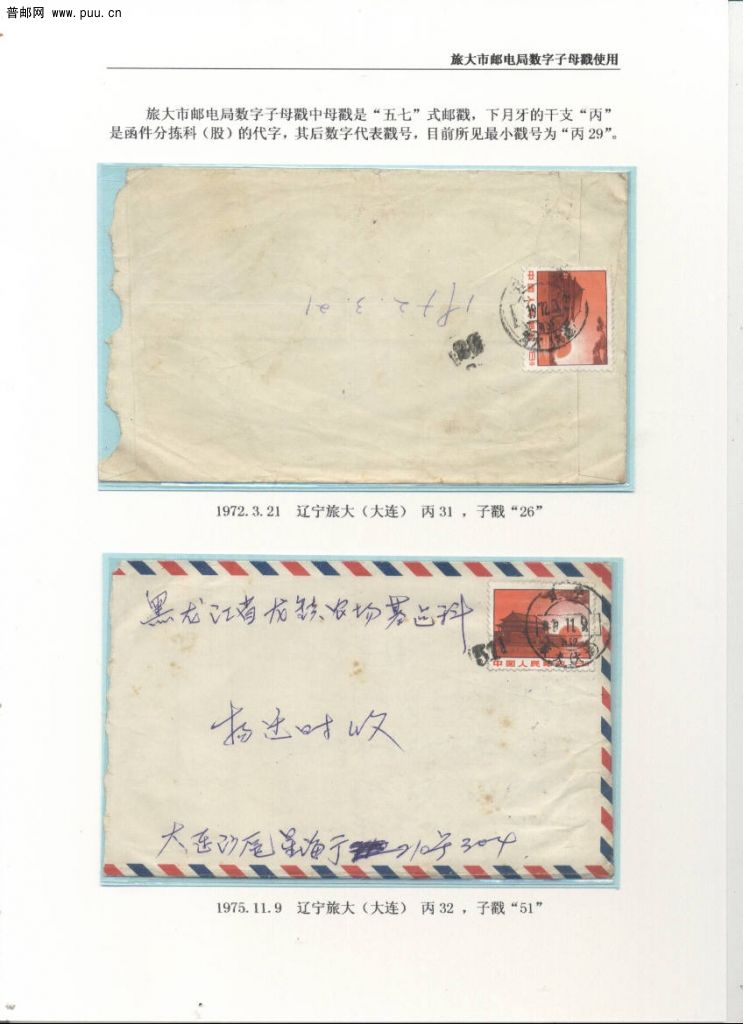 普邮网 www.puu.cn
旅大市邮电局数字子母戳使用
旅大市邮电局数字子母戳中母戳是“五七”式邮戳，下月牙的干支“丙”
是函件分拣科（股）的代字，其后数字代表戳号，目前所见最小戳号为“丙29”。
1972.3.21
1972.3.21 辽宁旅大（大连） 丙31，子戳“26”
黑龙江省龙镇农场基建科
中国人民邮政
收
大连沙 星海 304
1975.11.9 辽宁旅大（大连） 丙32，子戳“51”